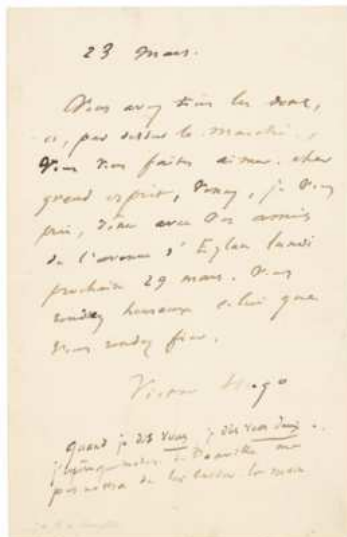 23 mars.
Vous avez tous les dons,
et, par dessus le marché,
Vous vous faites aimer. cher
grand esprit, Venez, je vous
prie, dîner avec vos amis
de l'avenue d'Eylau lundi
prochain 29 mars. Vous
rendrez heureux celui que
vous rendez fier.
Victor Hugo
Quand je dis vous je dis vous deux.
j'espère que madame de Banville me
permettra de lui baiser la main